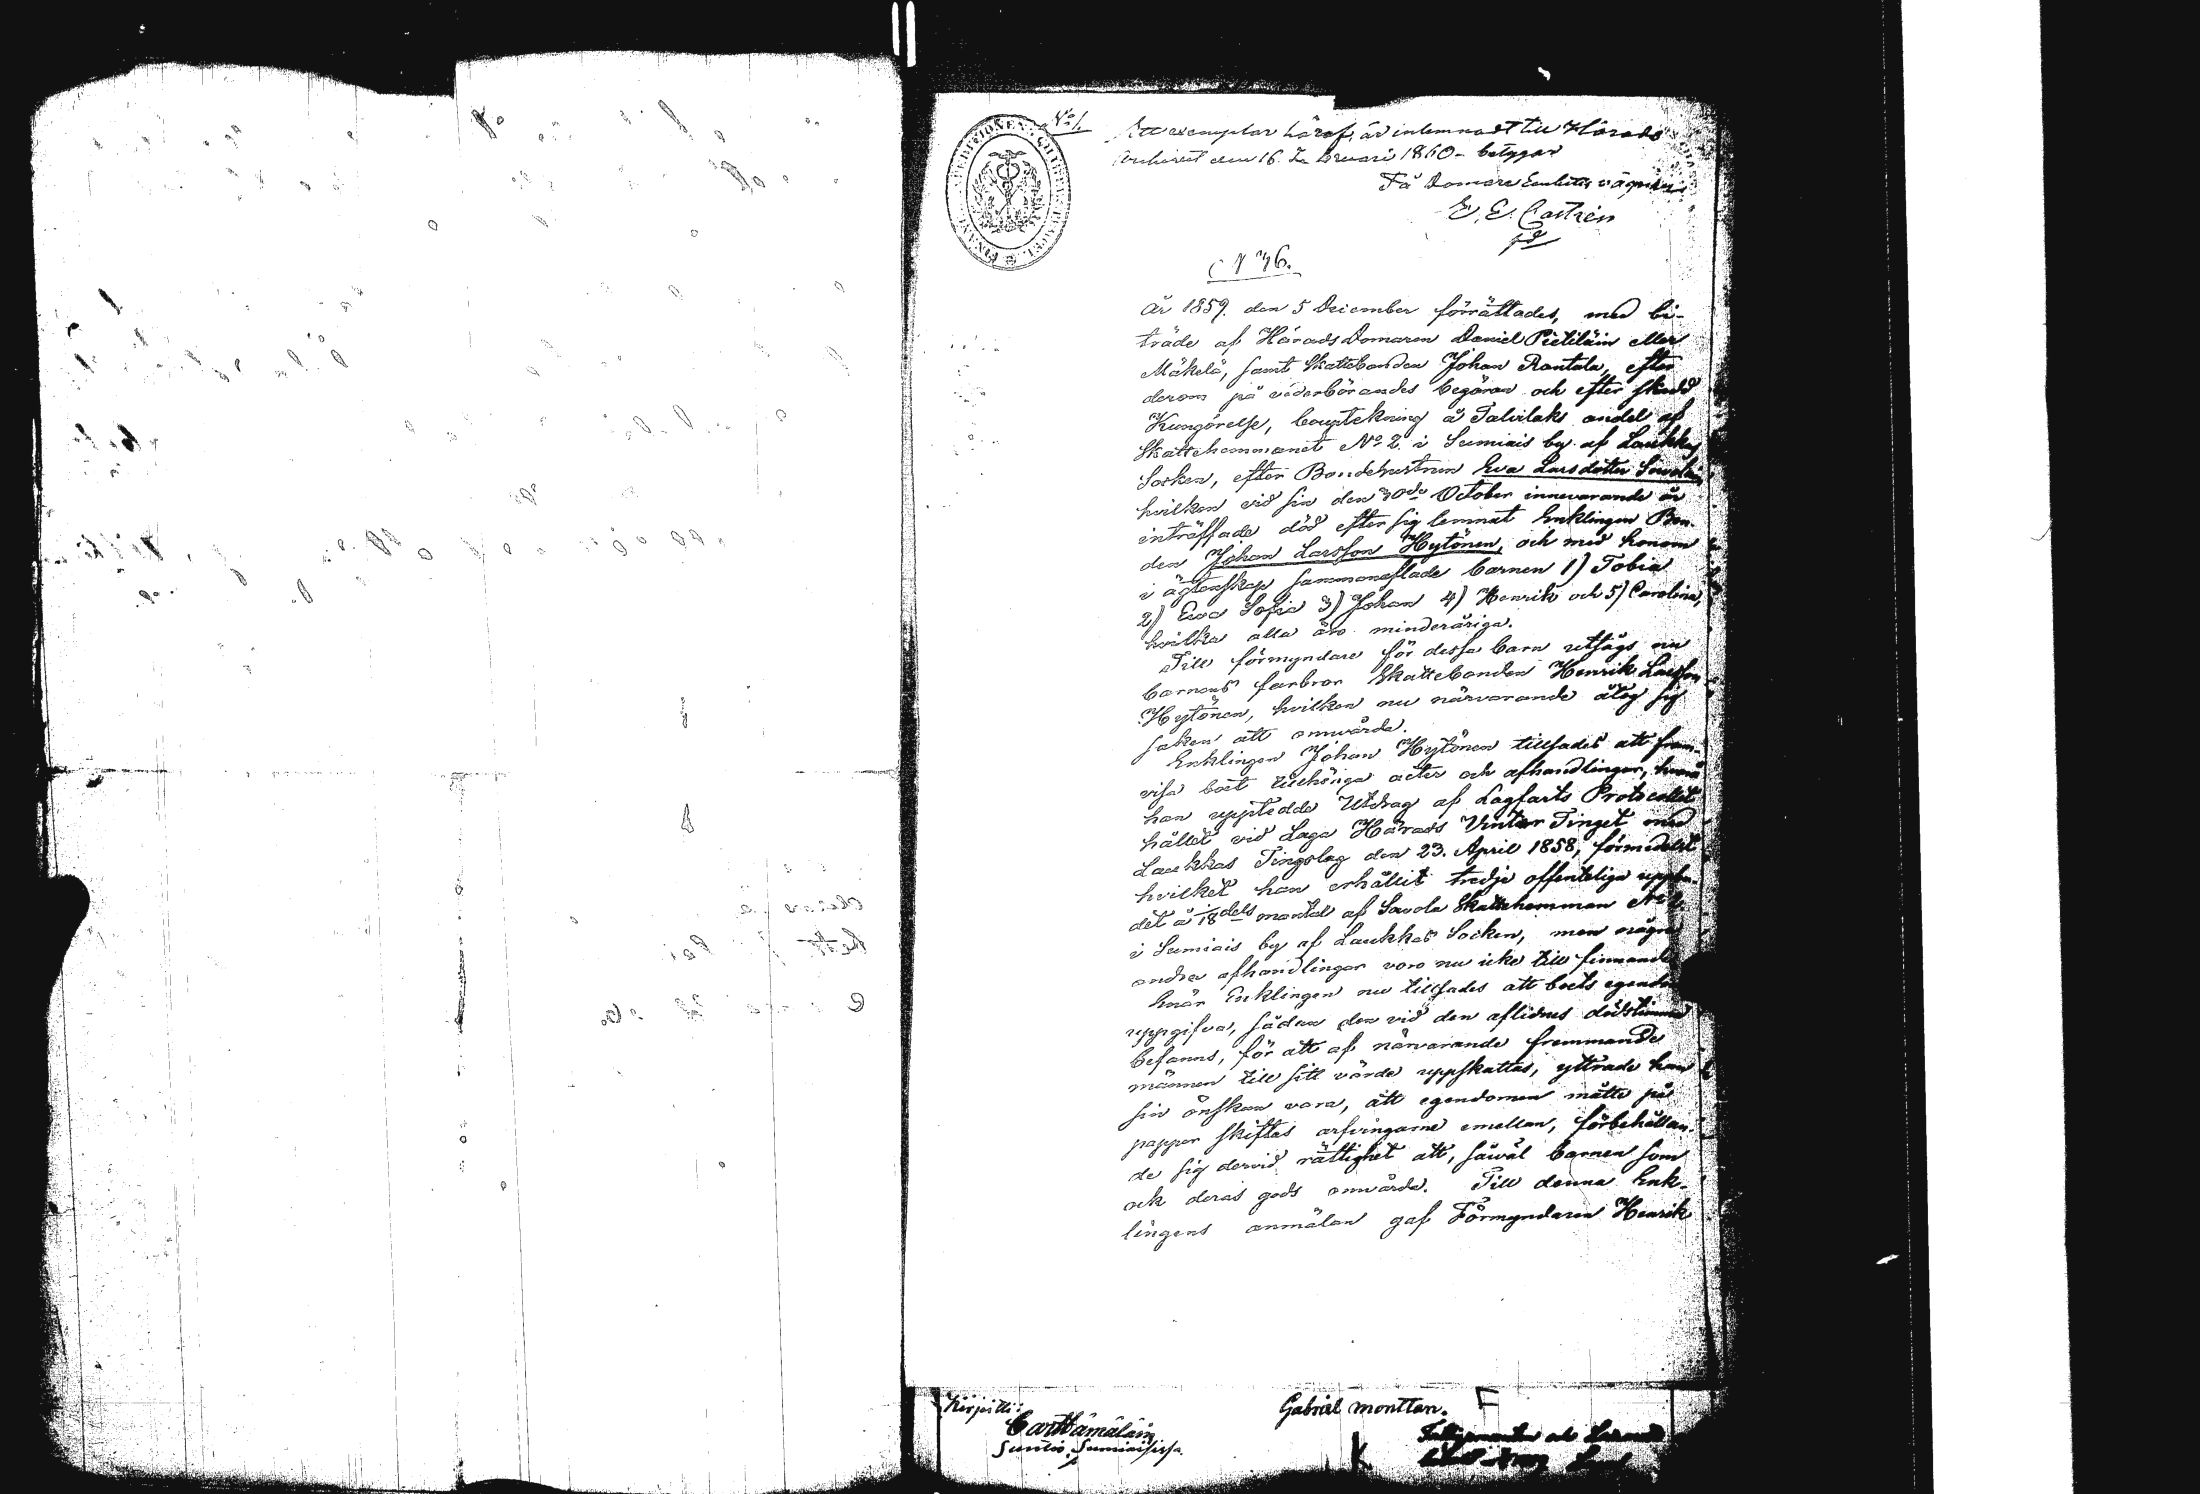 No 1.
Ett exemplar häraf är inlemnadt till Härads
Archivet den 16. Februari 1860 - betygar
På Domare Embetets vägnar
E. E. Castrén
N 36.
År 1859. den 5 December förrättades, med bi-
träde af HäradsDomaren Daniel Pietiläin eller
Mäkelä, samt Skattebonden Johan Rantala, efter
derom på vederbörandes begäran och efter skedd
Kungörelse, bouptekning å Talvilaks andel af
Skattehemmanet No 2 i Sumiais by af Laukkas
Socken, efter Bondehustrun Eva Larsdotter
hvilken vid sin den 30de October innevarande år
inträffade död efter sig lemnat Enklingen Bon-
den Johan Larsson Hytönen, och med honom
i ägtenskap sammanaflade barnen 1) Tobias
2) Eva Sofia 3) Johan 4) Henrik och 5) Carolina,
hvilka alla äro minderåriga.
Till förmyndare för dessa barn utsågs nu
barnens farbror Skattebonden Henrik Larsson
Hytönen, hvilken nu närvarande åtog sig
saken att omvårda.
Enklingen Johan Hytönen tillsades att fram-
visa boet tillhöriga acter och afhandlingar, hvarå
han upptedde Utdrag af Lagfarts Protocollet
hållet vid Laga Härads Vinter Tinget med
Laukkas Tingslag den 23. April 1858, förmedelst
hvilket han erhållit tredje offenteliga uppbu-
det å 1/8dels mantal af Savola Skattehemman No 2.
i Sumiais by af Laukkas Socken, men några
andra afhandlingar voro nu icke till finnandes
Enär Enklingen nu tillsades att boets egendom
uppgifva, sådan den vid den aflidnes dödstimma
befanns, för att af närvarande fremmande
männen till sitt värde uppskattas, yttrade han
sin önskan vara, att egendomen måtte på
papper skiftas arfvingarne emellan, förbehållan-
de sig dervid rättighet att, såväl barnen som
ock deras gods omvårda. Till denna Enk-
lingens anmälan gaf Förmyndaren Henrik
Kirjoitti:
Carl Hämäläin
Suntio Sumiaisissa
Gabriel Monttan.